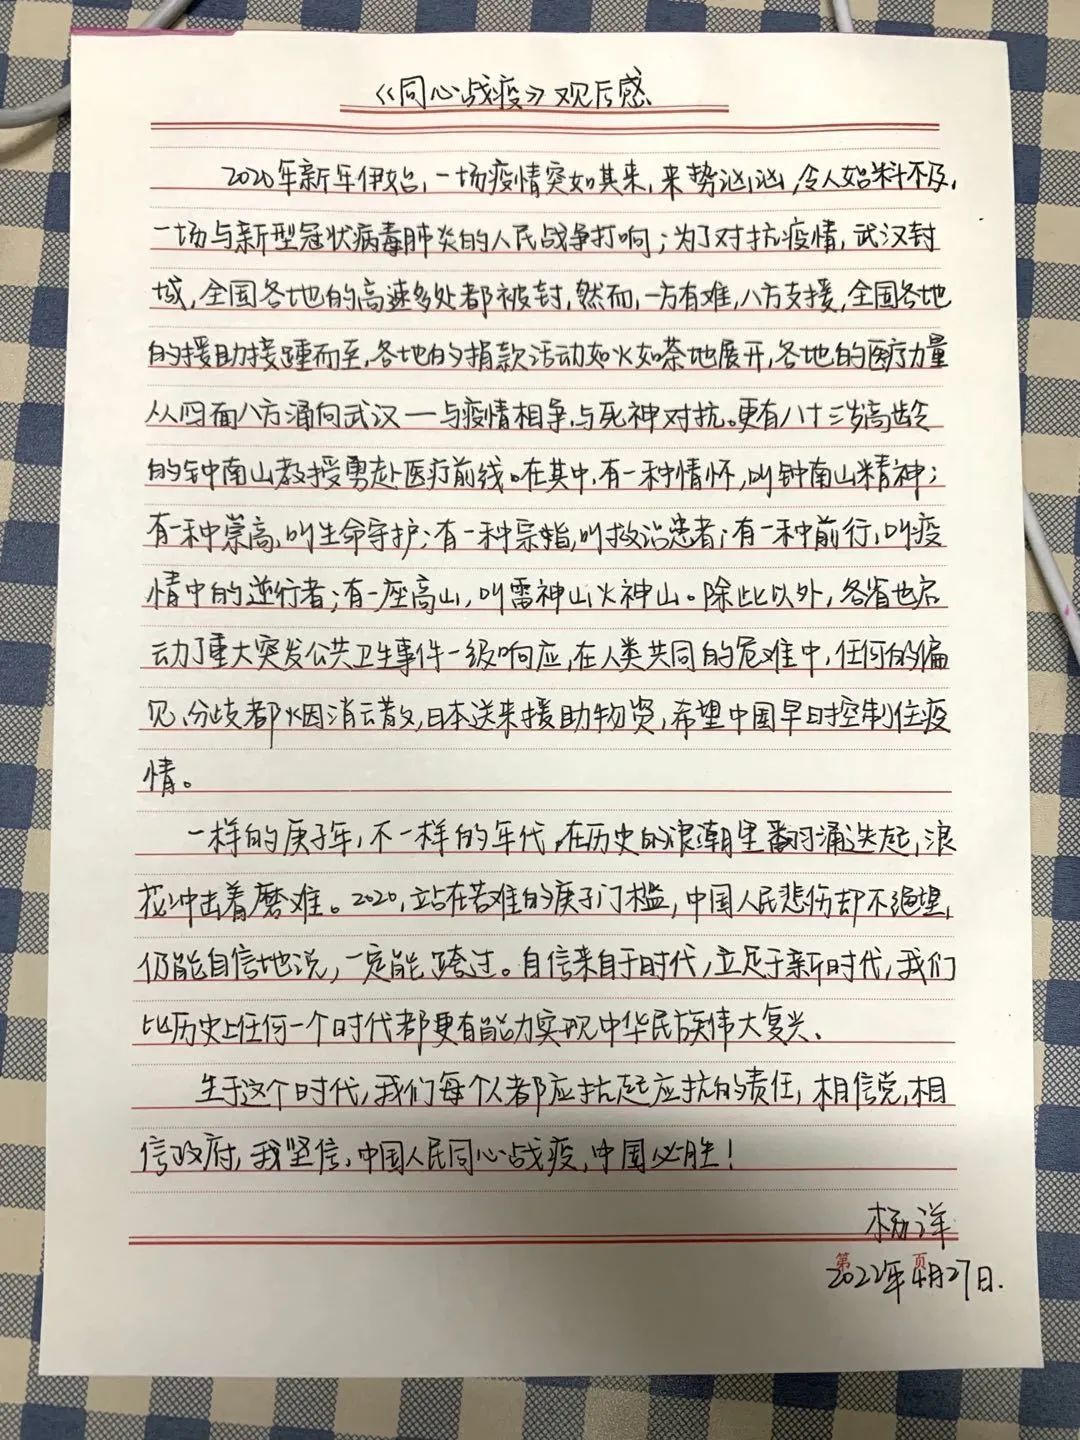 《同心战疫》观后感
2020年新年伊始,一场疫情突如其来,来势汹汹,令人始料不及,
一场与新型冠状病毒肺炎的人民战争打响;为了对抗疫情,武汉封
城,全国各地的高速多处都被封,然而,一方有难,八方支援,全国各地
的援助接踵而至,各地的捐款活动如火如荼地展开,各地的医疗力量
从四面八方涌向武汉——与疫情相争,与死神对抗。更有八十三岁高龄
的钟南山教授勇赴医疗前线。在其中,有一种情怀,叫钟南山精神;
有一种崇高,叫生命守护;有一种宗指,叫救治患者;有一种前行,叫疫
情中的逆行者;有一座高山,叫雷神山火神山。除此以外,各省也启
动了重大突发公共卫生事件一级响应,在人类共同的危难中,任何的偏
见、分歧都烟消云散,日本送来援助物资,希望中国早日控制住疫
情。
一样的庚子年,不一样的年代,在历史的浪潮里翻涌迭起,浪
花冲击着磨难。2020,站在苦难的庚子门槛,中国人民悲伤却不绝望,
仍能自信地说,一定能跨过。自信来自于时代,立足于新时代,我们
比历史上任何一个时代都更有能力实现中华民族伟大复兴、
生于这个时代,我们每个人都应抗起应抗的责任,相信党,相
信政府,我坚信,中国人民同心战疫,中国必胜!
杨洋
第 页
2022年4月27日.